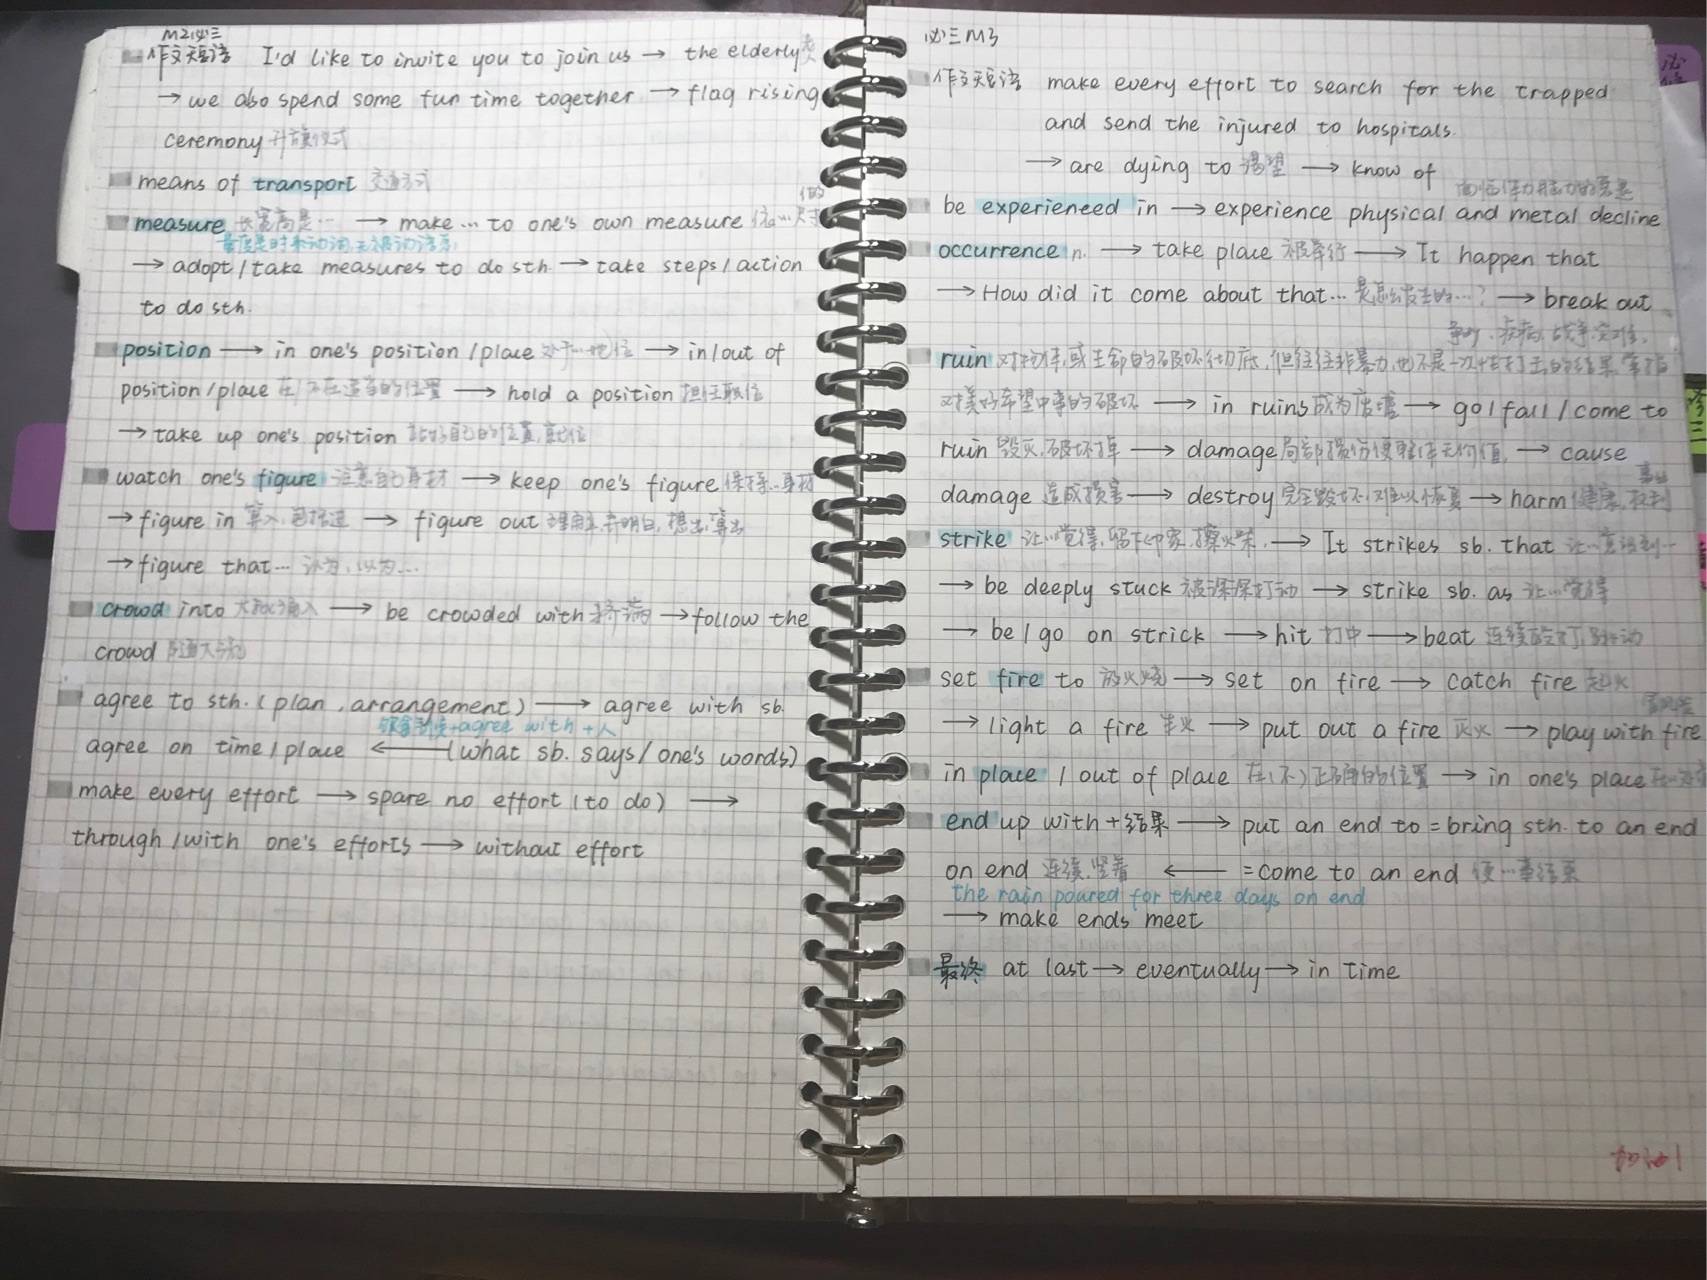 M2必三
作文短语 I'd like to invite you to join us → the elderly老
→ we also spend some fun time together → flag rising
ceremony 升旗仪式
means of transport 交通方式
measure 长宽高是… → make … to one's own measure
→ adopt / take measures to do sth. → take steps / action
to do sth.
position → in one's position / place 处于…地位 → in / out of
position / place 在/不在适当的位置 → hold a position 担任职位
→ take up one's position 站好自己的位置,就位
watch one's figure 注意自己身材 → keep one's figure 保持…身材
→ figure in 算入,包括进 → figure out 理解,弄明白,想出,算出
→ figure that … 认为,以为…
crowd into 大批涌入 → be crowded with 挤满 → follow the
crowd 随大流
agree to sth. ( plan , arrangement ) → agree with sb.
agree with + 人
agree on time / place ← ( what sb. says / one's words )
make every effort → spare no effort ( to do ) →
through / with one's efforts → without effort
必三 M3
作文短语 make every effort to search for the trapped
and send the injured to hospitals.
→ are dying to 渴望 → know of
be experieneed in → experience physical and metal decline
occurrence n. → take place 被举行 → It happen that
→ How did it come about that … 是怎么发生的…? → break out
争吵、疾病、战争、灾难
ruin 对物体或生命的破坏彻底,但往往非暴力,也不是一次性打击的结果,常指
对美好希望中事的破坏 → in ruins 成为废墟 → go / fall / come to
ruin 毁灭,破坏掉 → damage 局部损伤使整体无价值 → cause
damage 造成损害 → destroy 完全毁坏,难以恢复 → harm 健康,权利
strike 让…觉得,留下印象,擦火柴, → It strikes sb. that 让…意识到…
→ be deeply stuck 被深深打动 → strike sb. as 让…觉得
→ be / go on strick → hit 打中 → beat 连续敲打,跳动
set fire to 放火烧 → set on fire → catch fire 起火
→ light a fire 生火 → put out a fire 灭火 → play with fire
in place / out of place 在(不)正确的位置 → in one's place
end up with + 结果 → put an end to = bring sth. to an end
on end 连续,竖着 ← = come to an end 使…事结束
the rain poured for three days on end
→ make ends meet
最终 at last → eventually → in time